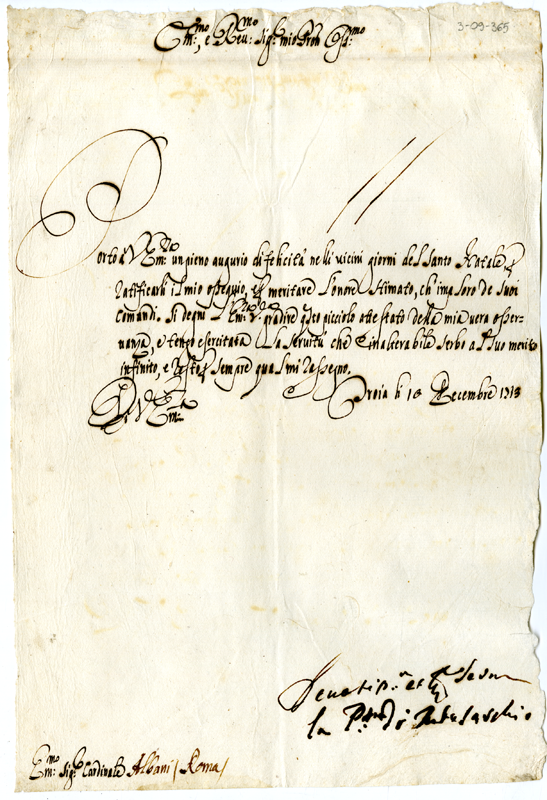 3-09-365
Em:mo, e Reu:mo Sig:r mio Pron Coll:mo
Porto à V. Em:za un pieno augurio di felicità nelli vicini giorni del Santo Natale p
ratificarli il mio ossequio, e p meritare l'onore stimato, ch'imploro de suoi
comandi. Si degni l'Em:za V.ra gradire q.sto picciolo attestato della mia vera osser-
uanza, e tenga esercitata la seruitù che inalterabile serbo al suo merito
infinito, e resto p sempre qual mi rassegno.
Di V. Em:za
Troia li 18 Decembre 1713
Deuotis.a et
la
Em:mo Sig:r Cardinale Albani / Roma /